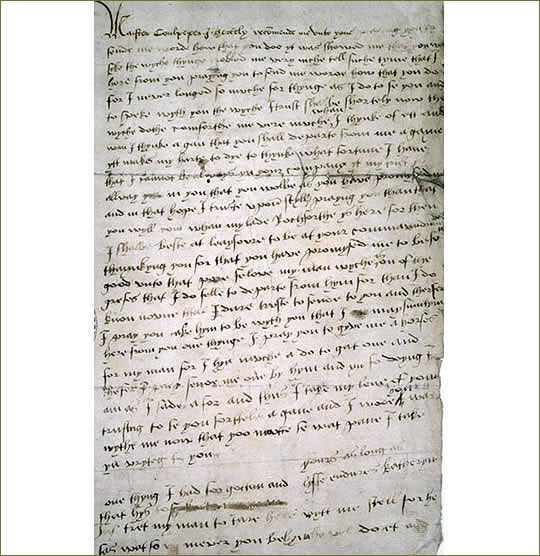 Master Coulpeper I hertely recomende me unto youe praying you to
sende me worde how that you doo yt was showed me that you was
sike the wyche thynge trobled me very muche tell suche tyme that I
here from you praying you to send me worde how that you do
for I never longed so muche for thynge as I do to se you and
to speke wyth you the wyche I trust shal be shortely now the
wyche dothe comforthe me verie muche whan I thynke of ett and
wan I thynke agan that you shall departe from me agane
ytt makes my harte to dye to thynke what fortune I have
that I cannot be always yn your company yt my trust ys
allway in you that you wolbe as you have promysed me
and in that hope I truste upon styll praying than that
you wyll com whan my lade Rochforthe ys here for then
I shalbe beste at leaysoure to be at your commarendment
thaynkyng you for that you have promysed me to be so
good unto that pore felowe my man wyche ys on of the
grefes that I do felle to departe from hym for than I do
know noone that I dare truste to sende to you and therfor
I pray you take hym to be wyth you that I may sumtym
here from you one thynge I pray you to gyve me a horse
for my man for I hyd muche a do to gat one and
therfor I pray sende me one by hym and yn so doying I
am as I sade afor and thus I take my leve of you
trusting to se you shortele agane and I wode you was
wythe me now that yoo maitte se wat pane I take
yn wryteg to you
yours as long as
lyffe endures Katheryn
one thyng I had forgotten and
that hys to
tret my man to tare here wytt me still for he
sas wat so ever you bed hym he wel do et and